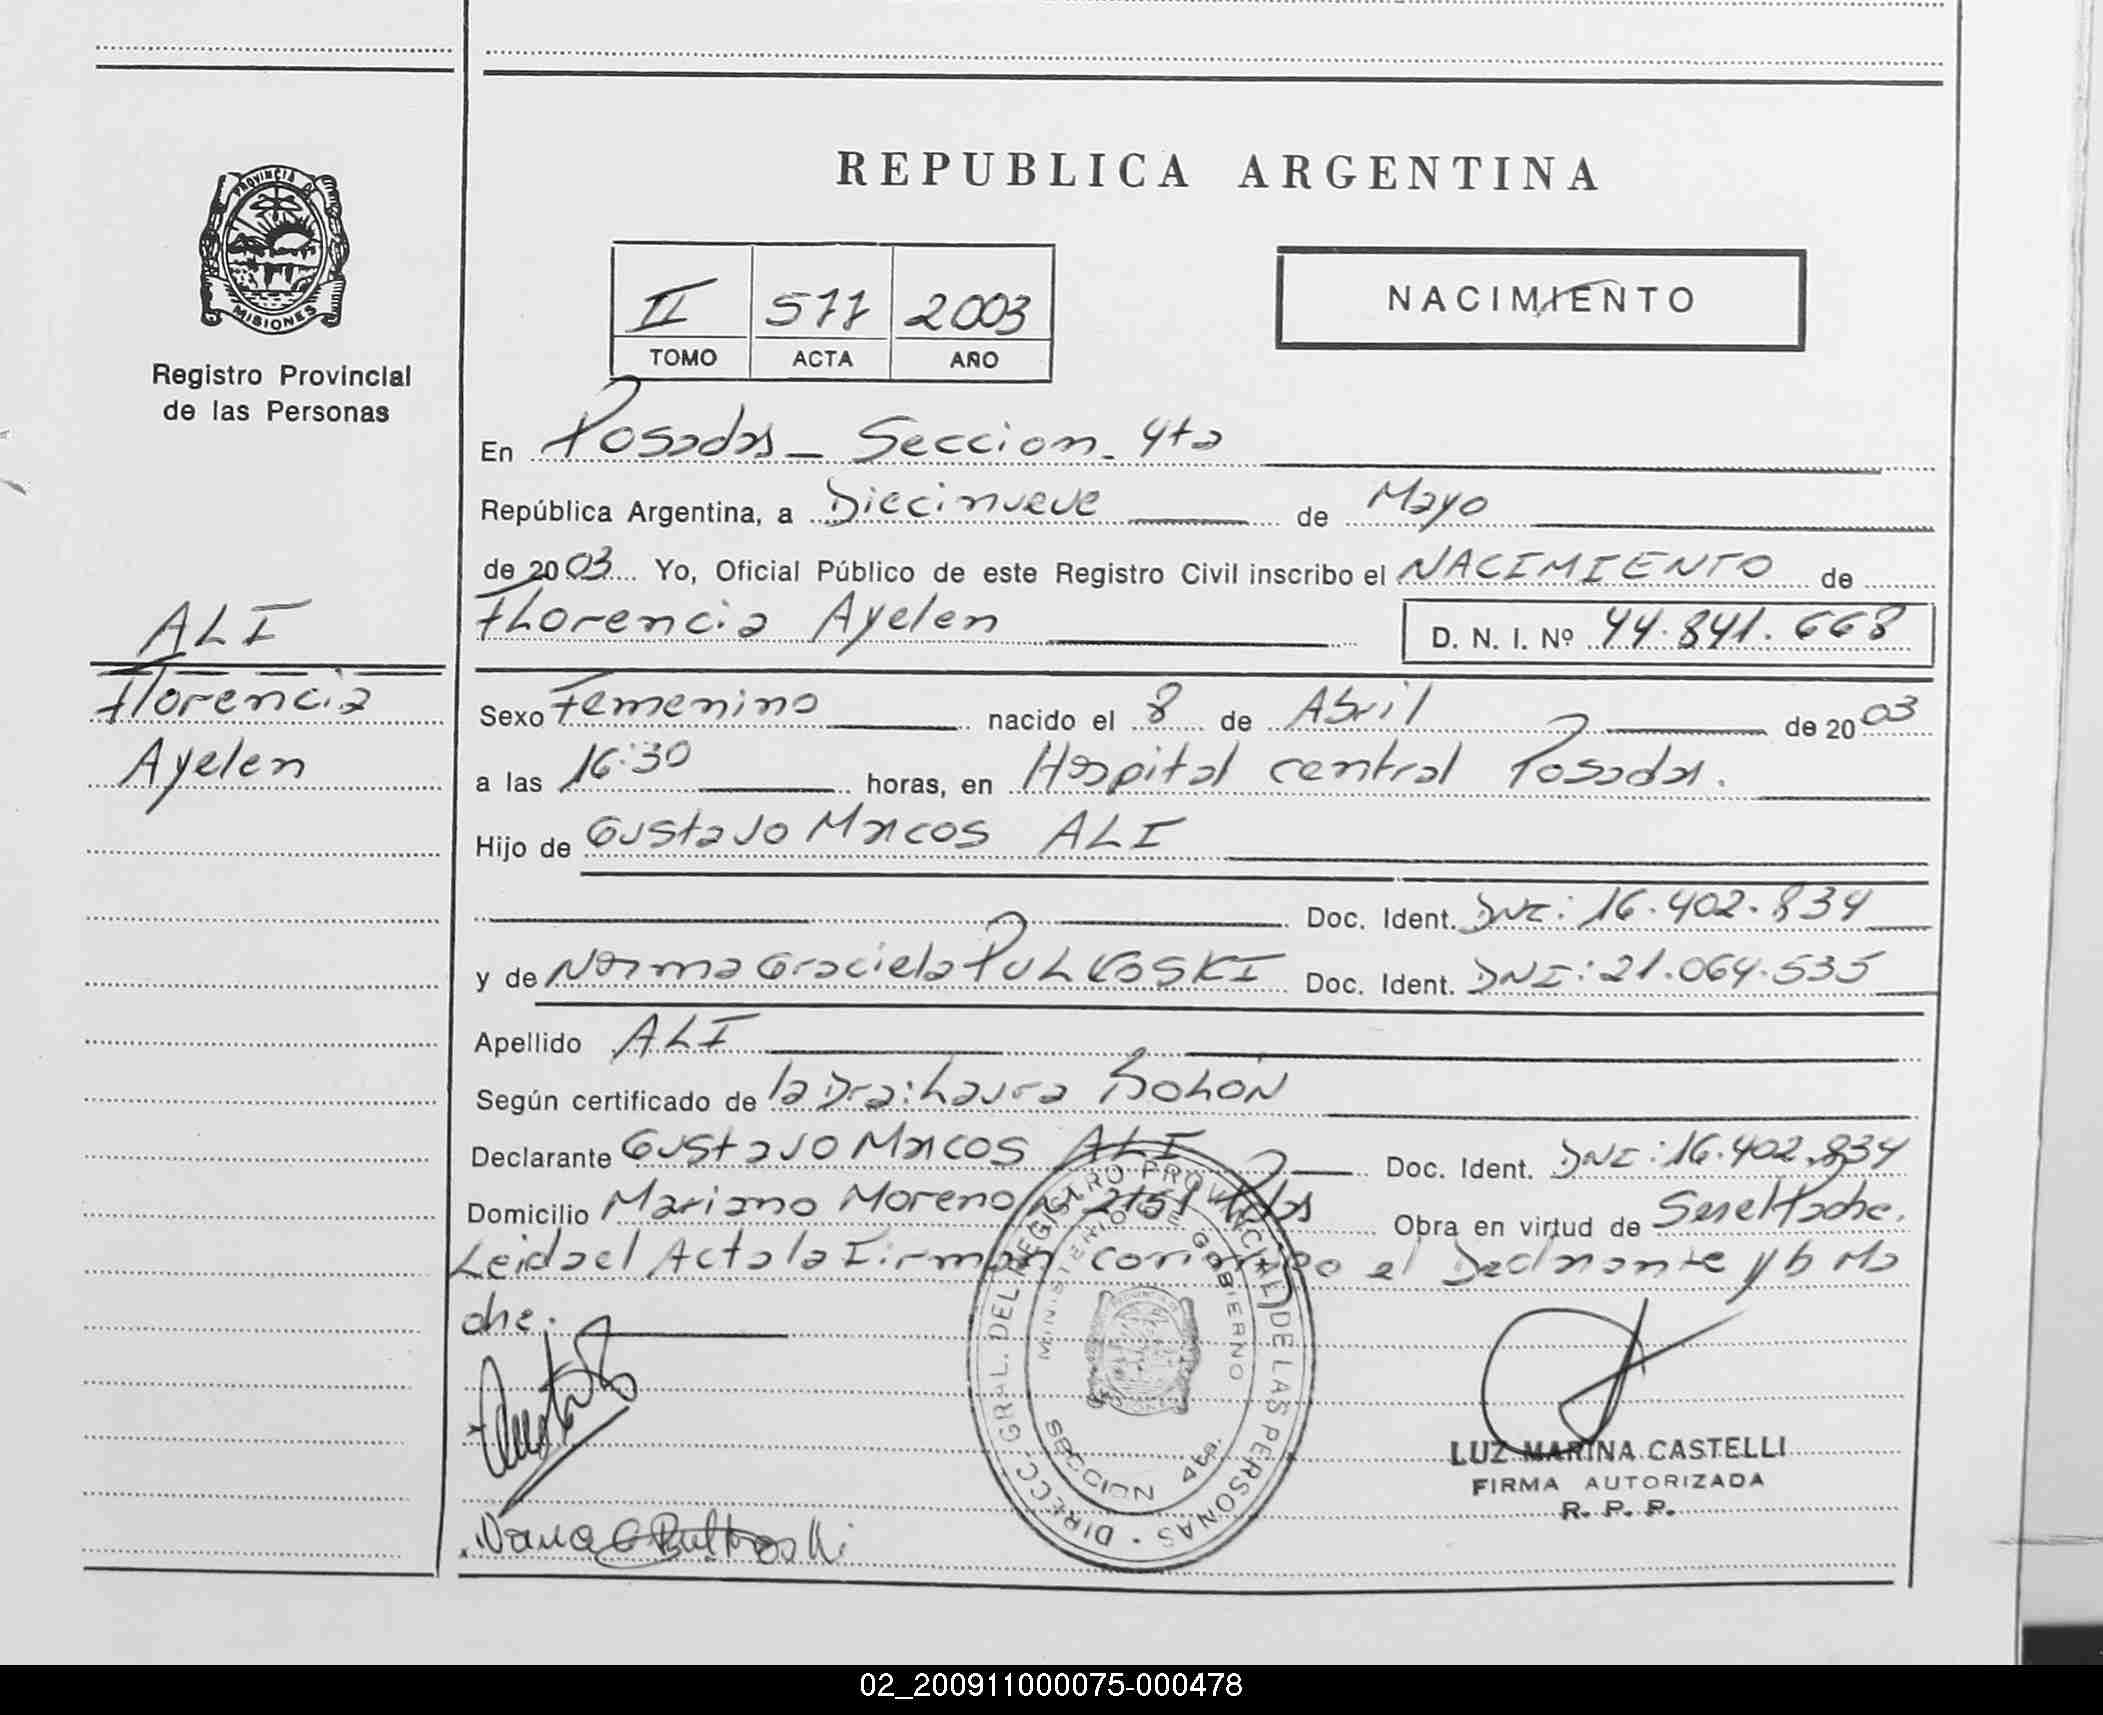 PROVINCIA DE
MISIONES
Registro Provincial
de las Personas
ALI
Florencia
Ayelen
REPUBLICA ARGENTINA
II 577 2003
TOMO ACTA AÑO
NACIMIENTO
En Posadas - Seccion - 4ta
República Argentina, a Diecinueve de Mayo
de 2003 Yo, Oficial Público de este Registro Civil inscribo el NACIMIENTO de
Florencia Ayelen D. N. I. Nº 44.841.668
Sexo Femenino nacido el 8 de Abril de 2003
a las 16:30 horas, en Hospital central Posadas.
Hijo de Gustavo Marcos ALI
Doc. Ident. DNI: 16.402.834
y de Norma Graciela PULKOSKI Doc. Ident. DNI: 21.064.535
Apellido ALI
Según certificado de la Dra: Laura
Declarante Gustavo Marcos ALI Doc. Ident. DNI: 16.402.834
Domicilio Mariano Moreno Nº 2151 Pdas Obra en virtud de Ser el Padre.
Leida el Acta la Firman conmigo el Declarante y la Ma
dre.
DIRECC. GRAL. DEL REGISTRO PROVINCIAL DE LAS PERSONAS
MINISTERIO DE GOBIERNO
SECCION 4ta.
LUZ MARINA CASTELLI
FIRMA AUTORIZADA
R. P. P.
02_200911000075-000478